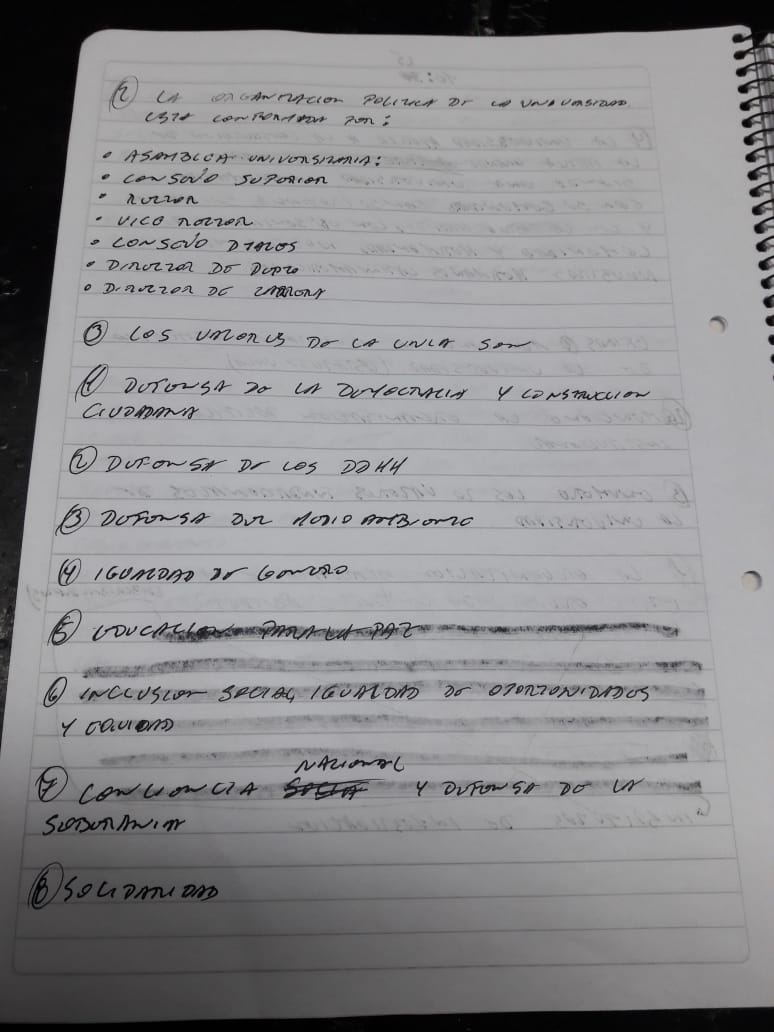 ② LA ORGANIZACION POLITICA DE LA UNIVERSIDAD
ESTA CONFORMADA POR:
• ASAMBLEA UNIVERSITARIA:
• CONSEJO SUPERIOR
• RECTOR
• VICE RECTOR
• CONSEJO DTALES
• DIRECTOR DE DEPTO
• DIRECTOR DE CARRERA
③ LOS VALORES DE LA UNLA SON
① DEFENSA DE LA DEMOCRACIA Y CONSTRUCCION
CIUDADANA
② DEFENSA DE LOS DDHH
③ DEFENSA DEL MEDIO AMBIENTE
④ IGUALDAD DE GENERO
⑤ EDUCACION PARA LA PAZ
⑥ INCLUSION SOCIAL, IGUALDAD DE OPORTONIDADES
Y EQUIDAD
NACIONAL
⑦ CONCIENCIA Y DEFENSA DE LA
SOBERANIA
⑧ SOLIDARIDAD